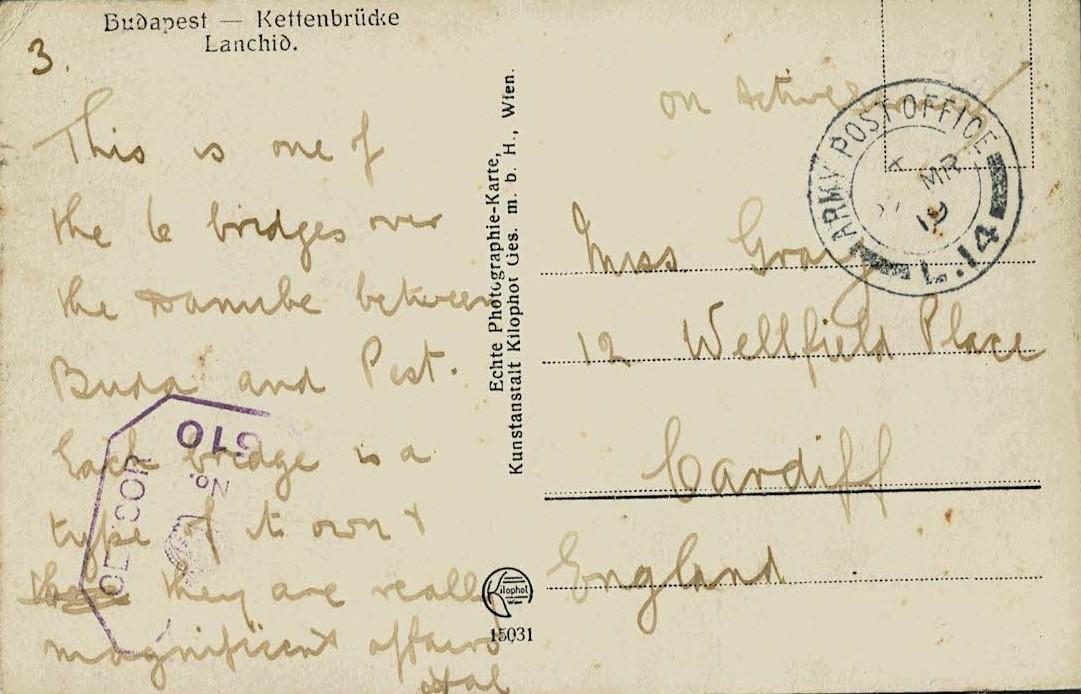 Budapest — Kettenbrücke
Lanchid.
3.
This is one of
the 6 bridges over
the Danube between
Buda and Pest.
Each bridge is a
type of it own &
they are really
magnificent affairs
Echte Photographie-Karte,
Kunstanstalt Kilophot Ges. m. b. H., Wien.
Kilophot
15031
on Active
ARMY POST OFFICE
MR
19
L.14
Miss Gray
12 Wellfield Place
Cardiff
England
No.